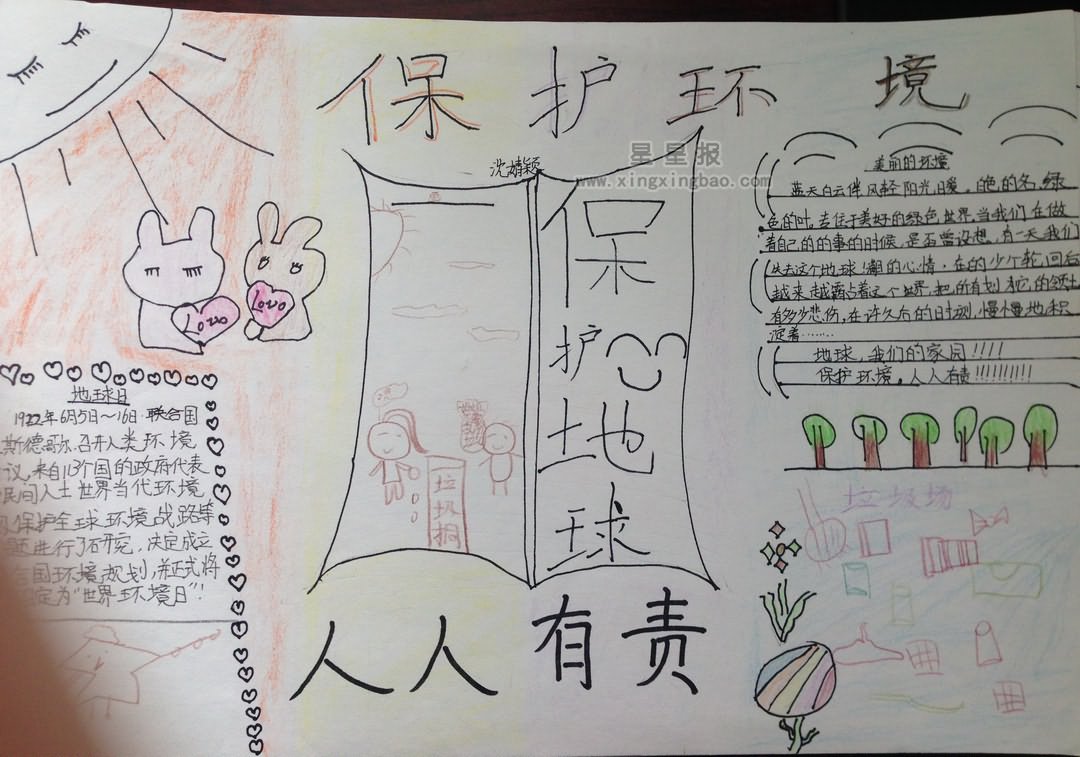 保护环境
沈婧颖
星星报
www.xingxingbao.com
保护地球
垃圾桶
人人有责
Lovo
Lovo
地球日
1922年6月5日~16日.联合国
斯德哥尔.召开人类环境
议,来自113个国的政府代表
民间人士世界当代环境
保护全球环境战路等
进行了研究,决定成立
国环境规划,并正式将
定为"世界环境日"!
美丽的环境
蓝天白云伴风轻阳光日暖。的色的名,绿
色的叶。去居于美好的绿色世界.当我们在做
着自己的的事的时候.是否曾设想,有一天我们
失去这个地球.潮的心情,在的少个轮.回后
越来越霸占着这个世界.把所有划有它的领土
有多少悲伤,在许久后的日时刻,慢慢地积
淀着……
地球,我们的家园!!!!
保护环境,人人有责!!!!!!!!!!
垃圾场